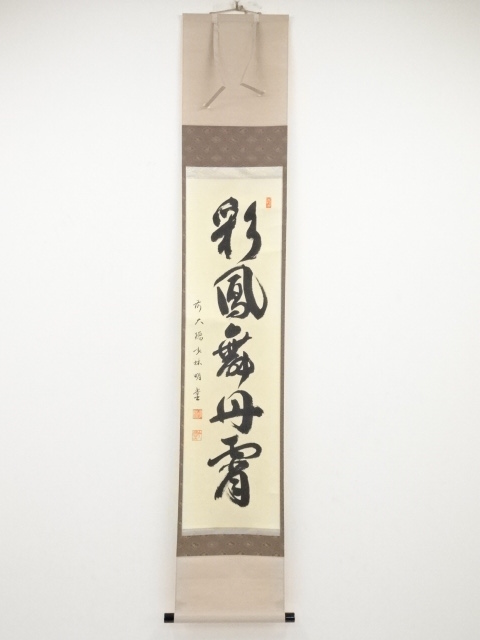 彩鳳舞丹霄
前大徳小林明堂